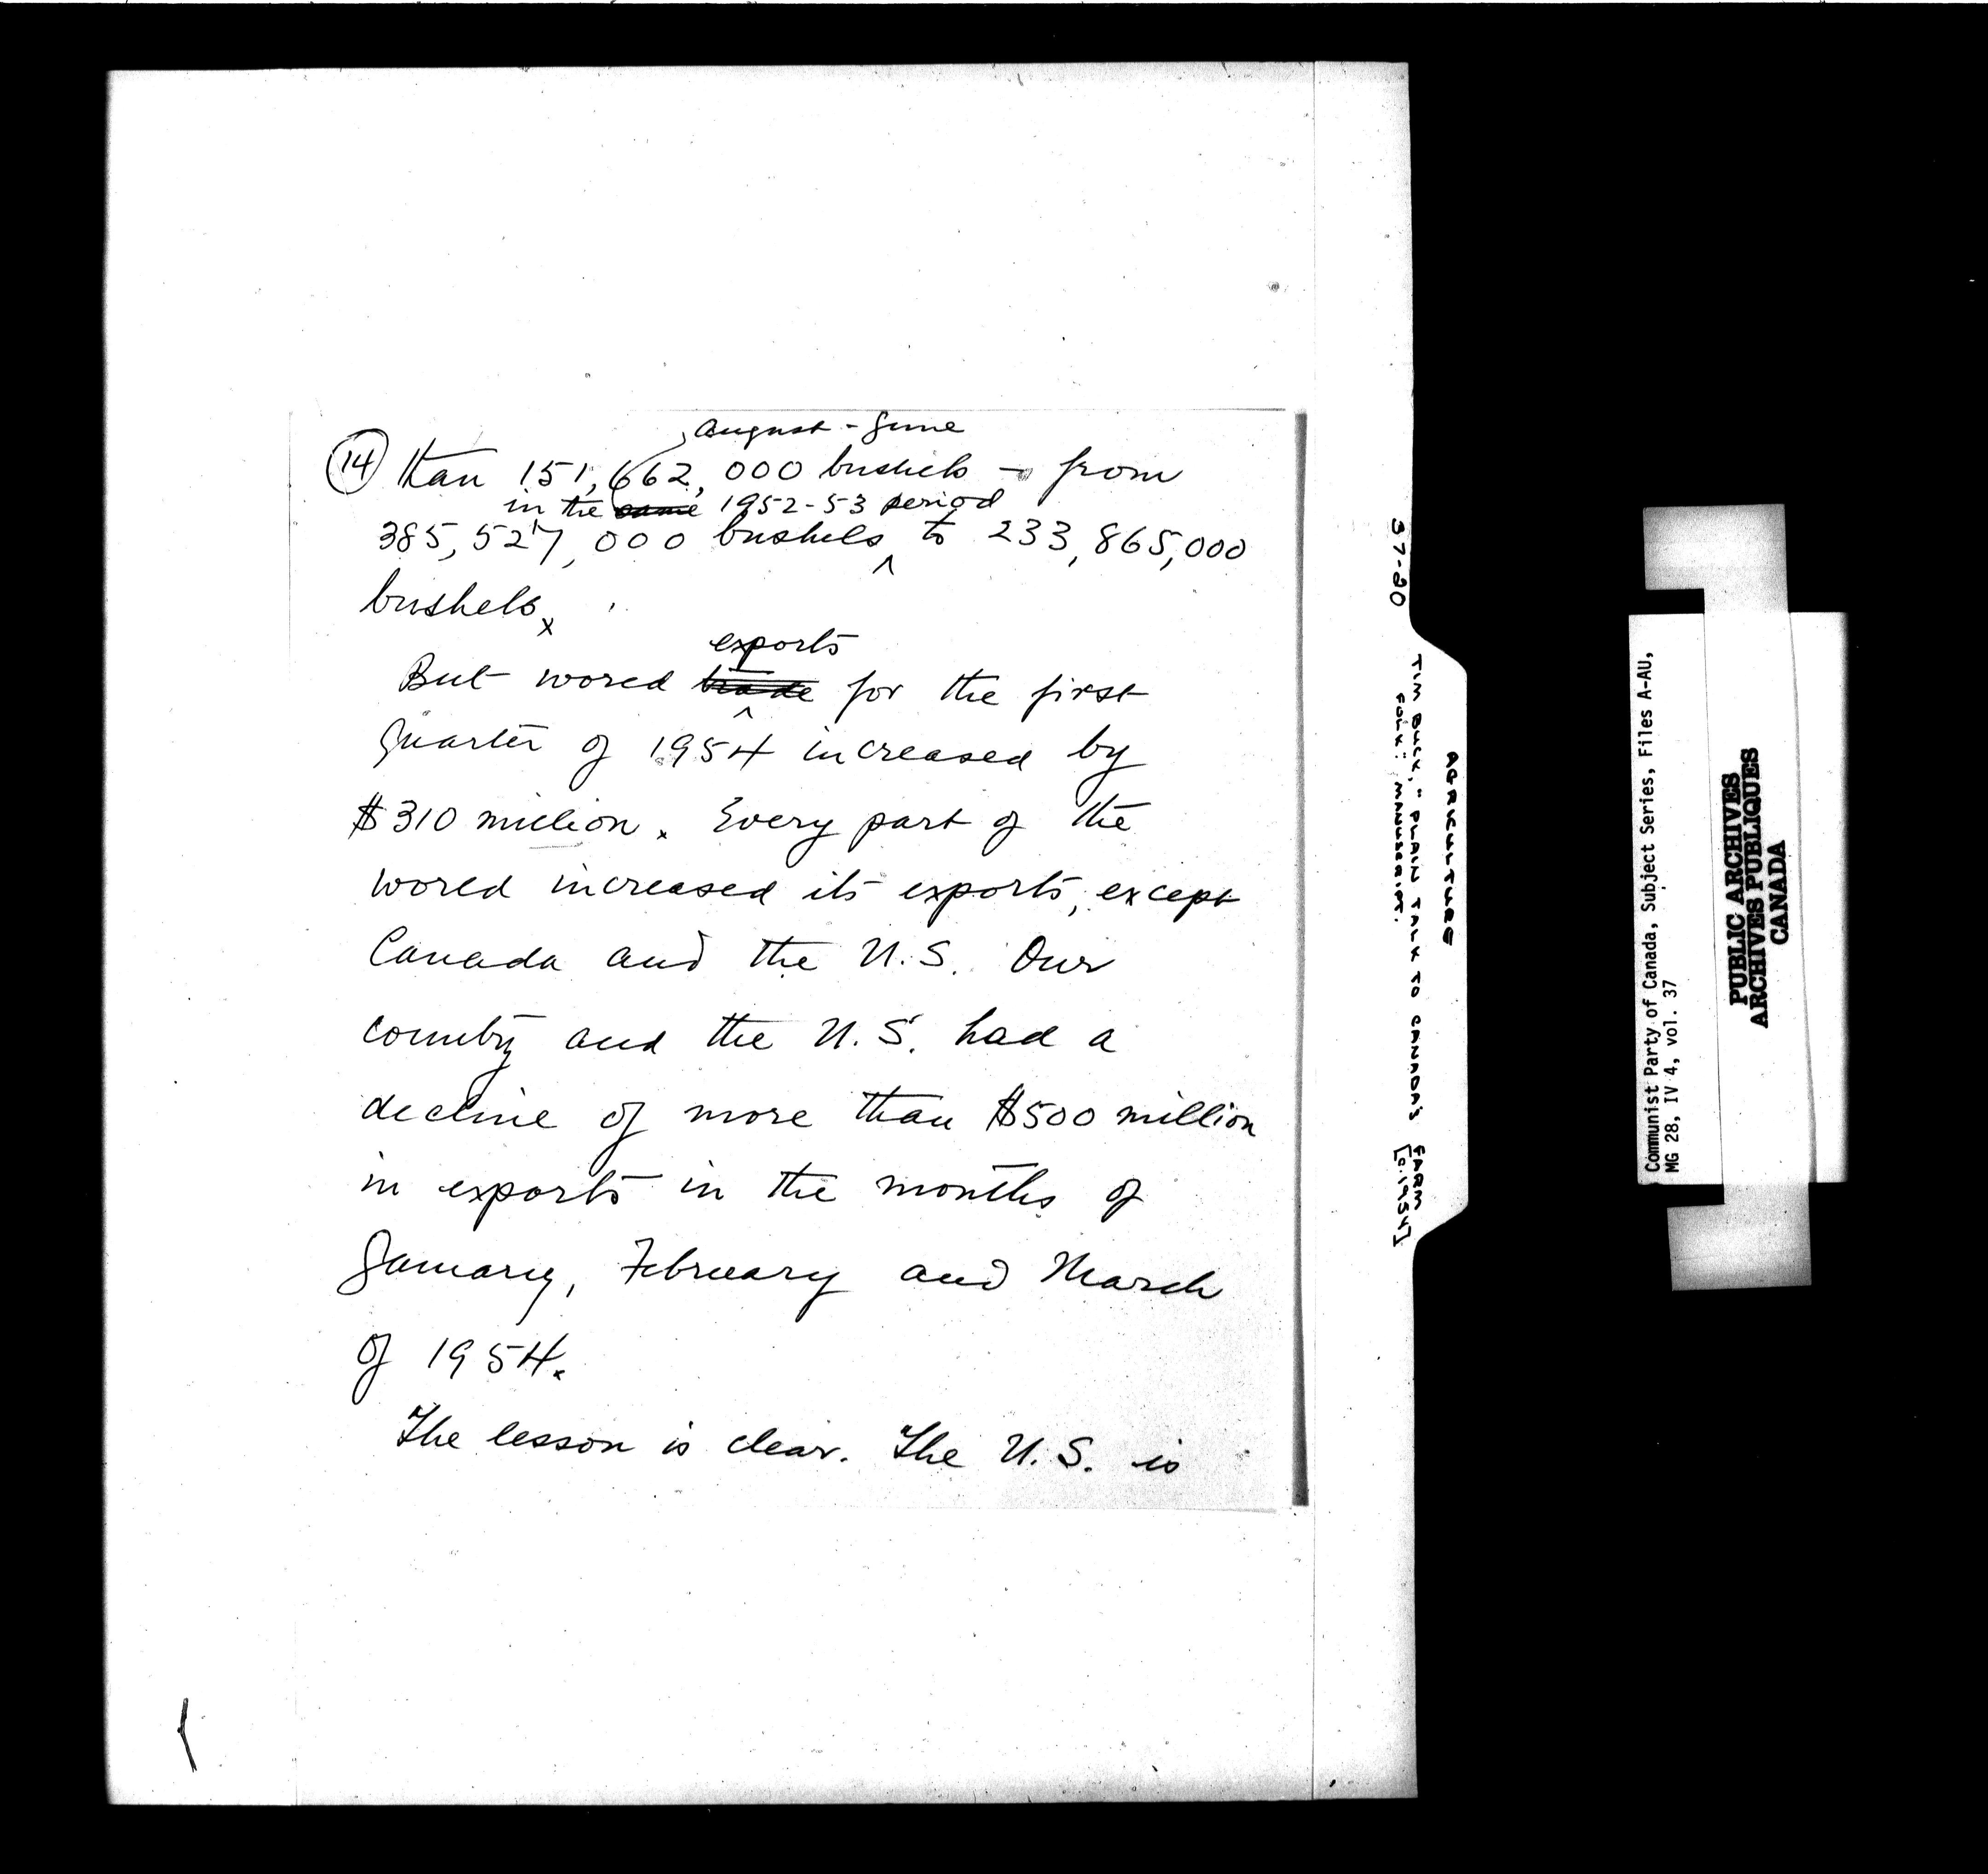 August - June
(14) than 151,662,000 bushels - from
in the same 1952-53 period
385,527,000 bushels ^ to 233,865,000
bushels.
exports
But world trade for the first
quarter of 1954 increased by
$310 million. Every part of the
world increased its exports, except
Canada and the U.S. Our
country and the U.S. had a
decline of more than $500 million
in exports in the months of
January, February and March
of 1954.
The lesson is clear. The U.S. is
37-20
AGRICULTURE
TIM BUCK, "PLAIN TALK TO CANADA'S FARM
FOLK: MANUSCRIPT. [c.1954]
Communist Party of Canada, Subject Series, Files A-AU,
MG 28, IV 4, vol. 37
PUBLIC ARCHIVES
ARCHIVES PUBLIQUES
CANADA